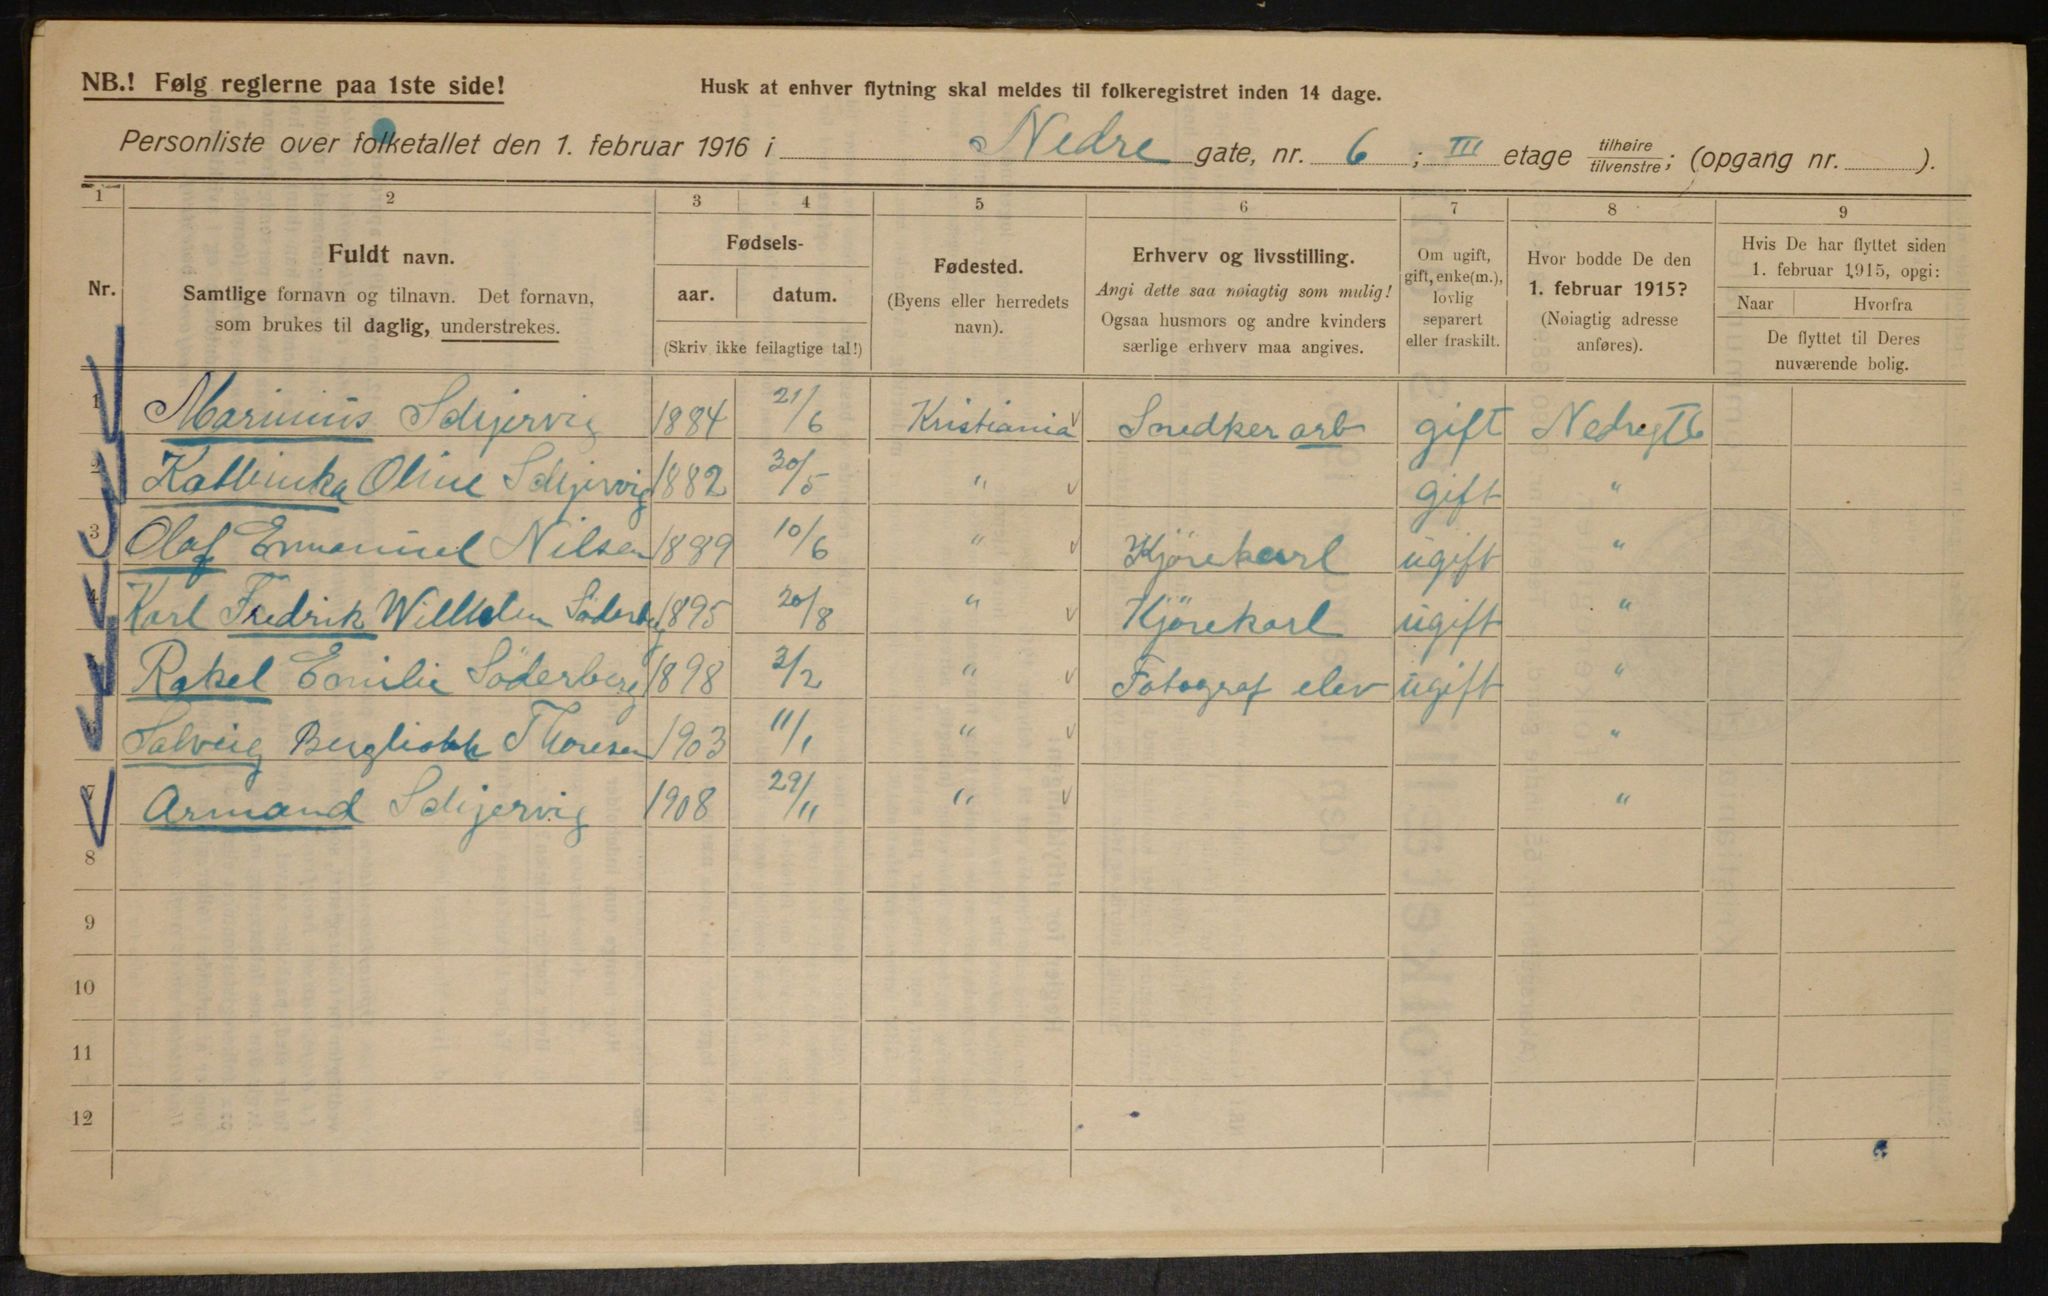 NB.! Følg reglerne paa 1ste side!
Husk at enhver flytning skal meldes til folkeregistret inden 14 dage.
Personliste over folketallet den 1. februar 1916 i Nedre gate, nr. 6; III etage tilhøire/tilvenstre; (opgang nr. ).
1 2 3 4 5 6 7 8 9
Nr.
Fuldt navn.
Samtlige fornavn og tilnavn. Det fornavn,
som brukes til daglig, understrekes.
Fødsels-
aar. datum.
(Skriv ikke feilagtige tal!)
Fødested.
(Byens eller herredets
navn).
Erhverv og livsstilling.
Angi dette saa nøiagtig som mulig!
Ogsaa husmors og andre kvinders
særlige erhverv maa angives.
Om ugift,
gift, enke(m.),
lovlig
separert
eller fraskilt.
Hvor bodde De den
1. februar 1915?
(Nøiagtig adresse
anføres).
Hvis De har flyttet siden
1. februar 1915, opgi:
Naar Hvorfra
De flyttet til Deres
nuværende bolig.
1 Marinius Schjervig 1884 21/6 Kristiania Snedker arb gift Nedregt 6
2 Kathinka Oline Schjervig 1882 30/5 " gift "
3 Olaf Emmanuel Nilsen 1889 10/6 " Kjörekarl ugift "
4 Karl Fredrik Wilhelm Söderberg 1895 20/8 " Kjörekarl ugift "
Rakel Emilie Söderberg 1898 3/2 " Fotograf elev ugift "
6 Solveig Bergliot Thoresen 1903 11/1 " "
7 Armand Schjervig 1908 29/11 " "
8
9
10
11
12